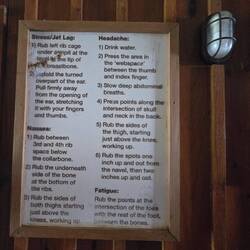 Stress/Jet Lag:
1) Rub left rib cage
under armpit at the
level to the tip of
breastbone.
2) Unfold the turned
overpart of the ear.
Pull firmly away
from the opening of
the ear, stretching
it with your fingers
and thumbs.
Nausea:
1) Rub between
3rd and 4th rib
space below
the collarbone.
2) Rub the underneath
side of the bone
at the bottom of
the ribs.
3) Rub the sides of
both thighs starting
just above the
knees, working up.
Headache:
1) Drink water.
2) Press the area in
the 'webspace'
between the thumb
and index finger.
3) Slow deep abdominal
breaths.
4) Press points along the
intersection of skull
and neck in the back.
5) Rub the sides of the
thigh, starting just
above the knee,
working up.
6) Rub the spots one
inch up and out from
the navel, then two
inches up and out.
Fatigue:
Rub the points at the
intersection of the toes
with the rest of the foot,
between the bones.